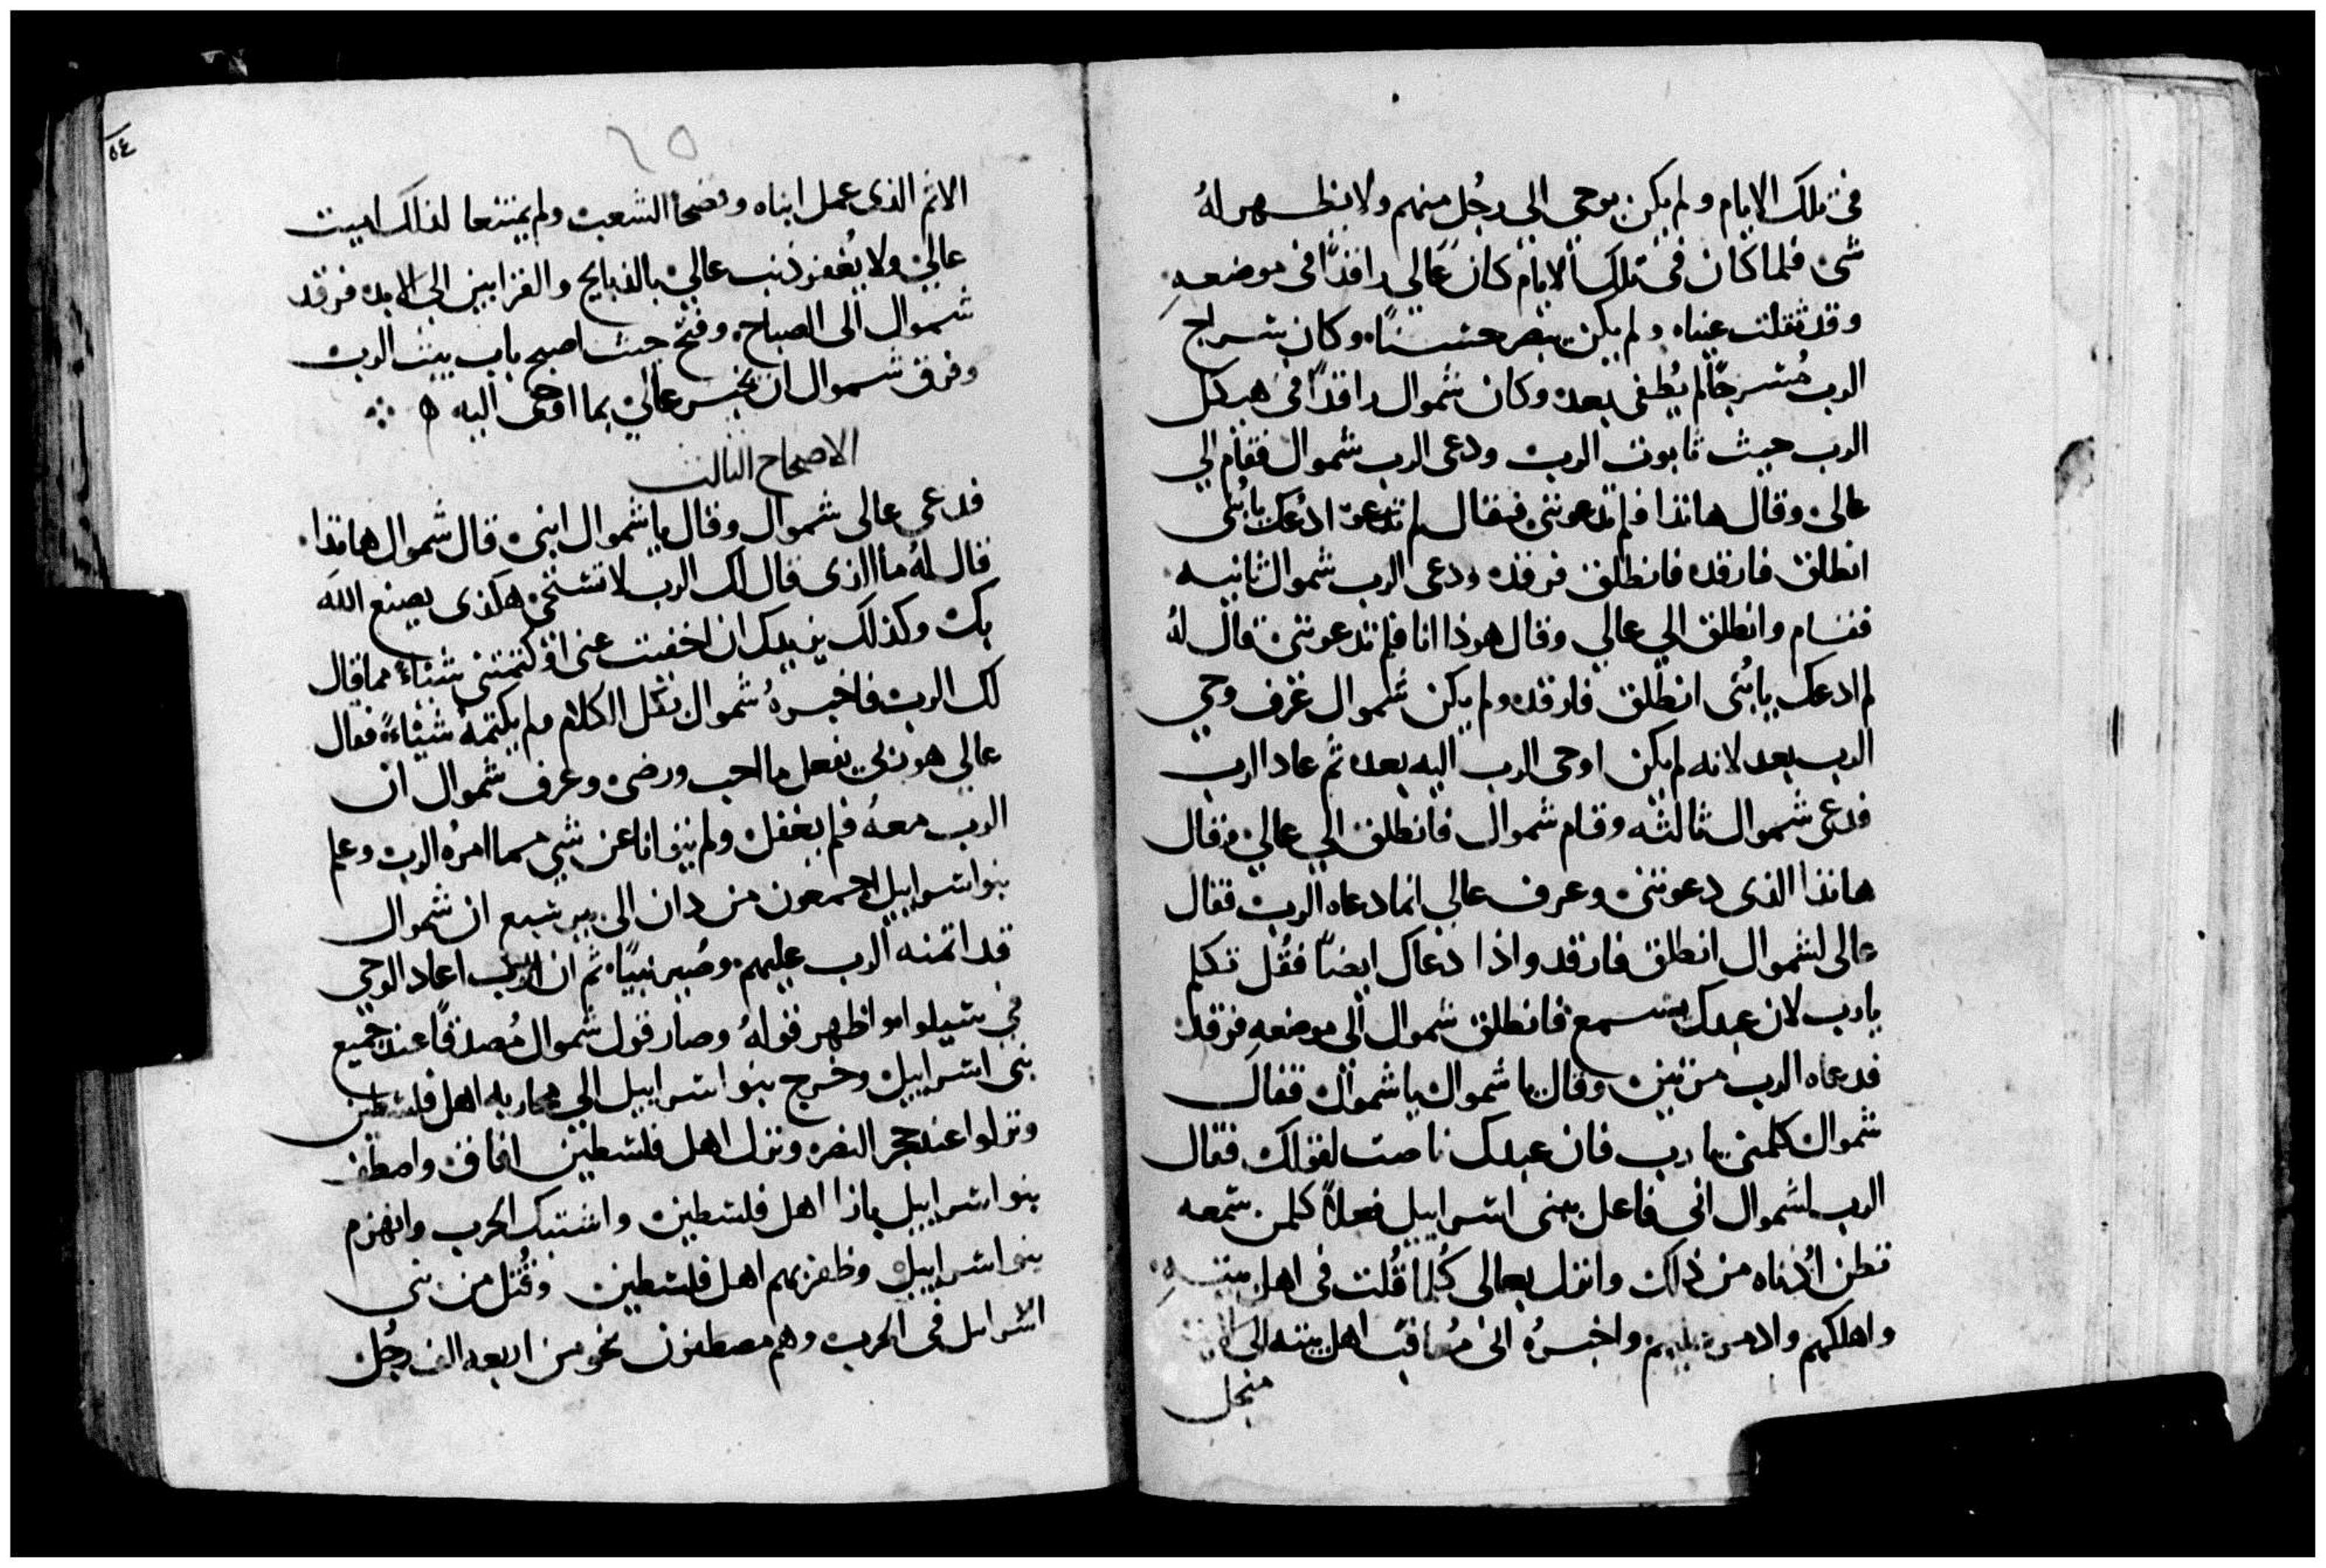 فى تلك الايام ولم يكن يوحى الى رجُل منهم ولا يظهر لهُ
شى فلما كان فى تلك الايام كان عالى راقدًا فى موضعهِ
وقد ثقلت عيناه ولم يكن يبصر حسنًا وكان سراج
الرب مُسرجًا لم يُطفى بعد وكان شموال راقدًا فى هيكل
الرب حيث تابوت الرب ودعى الرب شموال فقام الي
عالى وقال هانذا فلم تدعونى فقال لم ادعك يا بُنى
انطلق فارقد فانطلق فرقد ودعى الرب شموال ثانيه
فقام وانطلق الي عالي وقال هوذا انا فلم تدعونى قال لهُ
لم ادعك يا بُنى انطلق فارقد ولم يكن شموال عرف وحي
الرب بعد لانه لم يكن اوحى الرب اليه بعد ثم عاد الرب
فدعى شموال ثالثه وقام شموال فانطلق الي عالي وقال
هانذا الذى دعوتنى وعرف عالي انما دعاه الرب فقال
عالى لشموال انطلق فارقد واذا دعاك ايضًا فقُل تكلم
يا رب لان عبدك يسمع فانطلق شموال الى موضعهِ فرقد
فدعاه الرب مرتين وقال يا شموال يا شموال فقال
شموال كلمنى يا رب فان عبدك ناصت لقولك فقال
الرب لشموال انى فاعل ببنى اسراييل فعلاً كلمن سمعه
تطن اُذناه من ذلك وانزل بعالى كُلما قُلت فى اهل بيتهِ
واهلكهم وادمر عليهم واخبرهُ انى مُعاقب اهل بيته الى الابد
منجل
٥٤
٦٥
الاثم الذى عمل ابناه وفضحا الشعب ولم يمتنعا لذالك لبيت
عالي ولا يُغفر ذنب عالي بالذبايح والقرابين الى الابد فرقد
شموال الى الصباح وفتح حيث اصبح باب بيت الرب
وفرق شموال ان يخبر عالي بما اوحى اليه ه
الاصحاح الثالث
فدعى عالى شموال وقال يا شموال ابنى قال شموال هانذا
قال لهُ ما الذى قال لك الرب لا تستحى هكذى يصنع الله
بك وكذلك يزيدك ان اخفيت عنى او كتمتنى شيئاً مما قال
لك الرب فاخبرهُ شموال بكل الكلام ولم يكتمهُ شيئاً فقال
عالي هو ربي يفعل ما احب ورضى وعرف شموال ان
الرب معهُ فلم يغفل ولم يتوانا عن شي مما امرهُ الرب وعلم
بنوا اسراييل اجمعون من دان الى بير سبع ان شموال
قد اتمنه الرب عليهم وصُير نبيًا ثم ان الرب اعاد الوحي
في سيلوا واظهر قولهُ وصار قول شموال مُصدقًا عند جميع
بنى اسراييل وخرج بنو اسراييل الى محاربه اهل فلسطين
ونزلوا عند حجر النصره ونزل اهل فلسطين افاق واصطف
بنو اسراييل بازا اهل فلسطين واشتبك الحرب وانهزم
بنو اسراييل وظفر بهم اهل فلسطين وقُتل من بنى
اسراىل فى الحرب وهم مصطفون نحو من اربعه الف رجُل